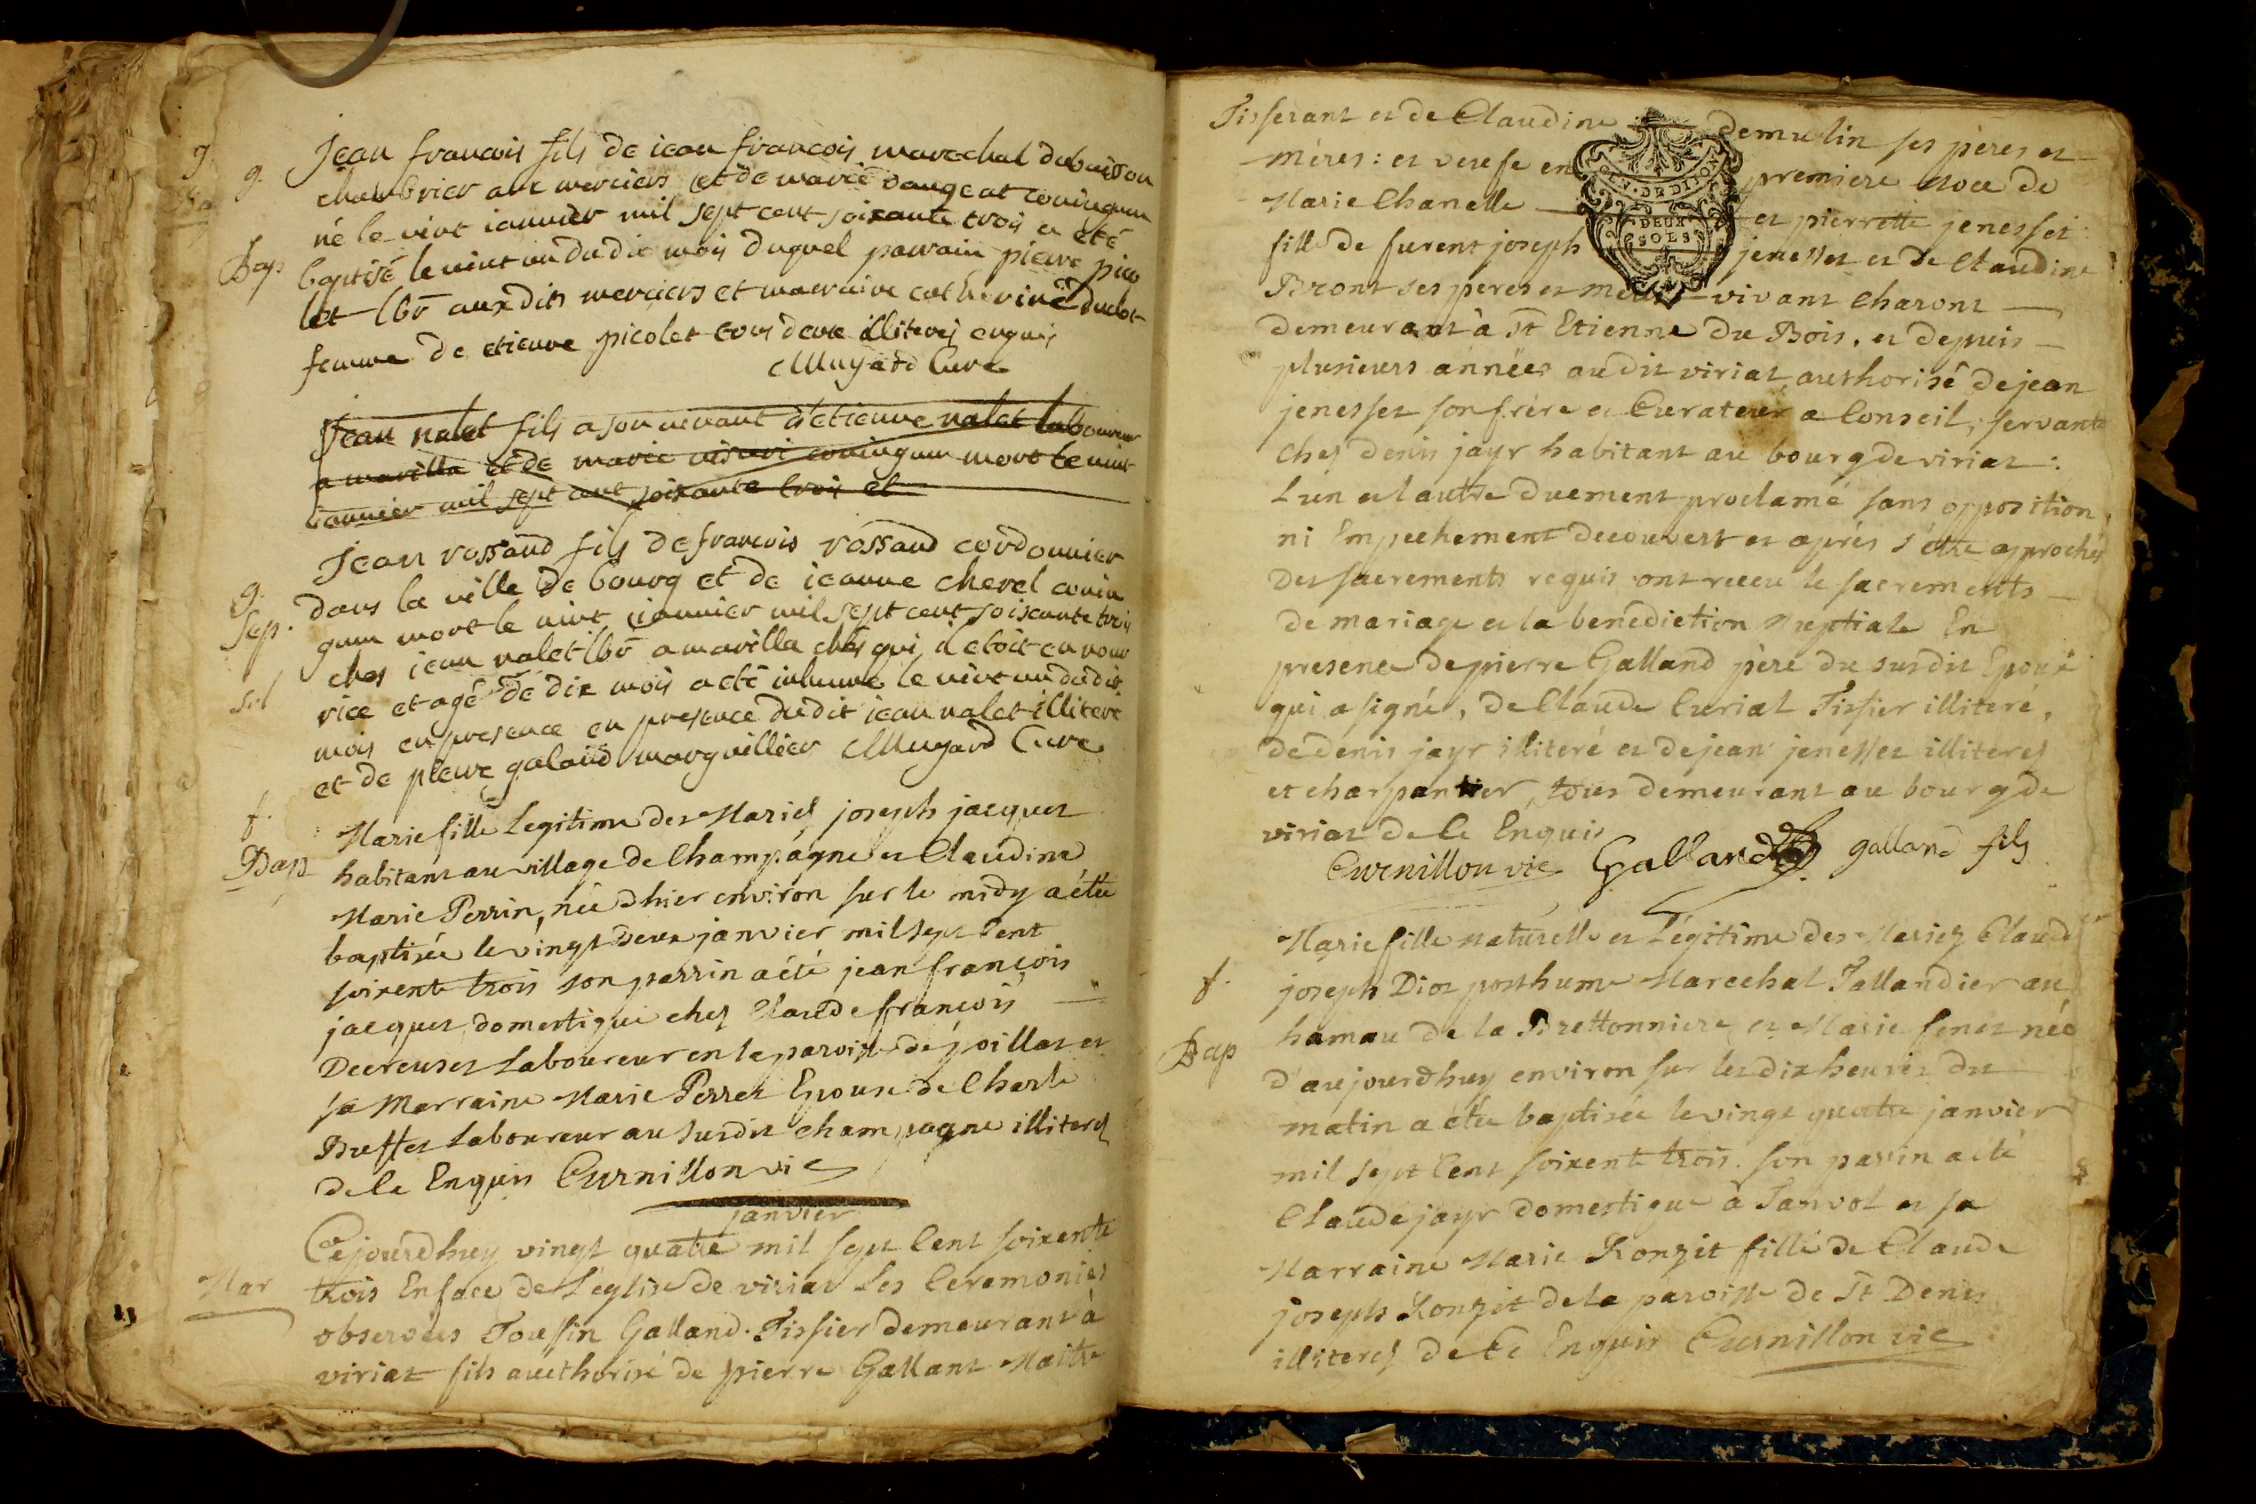 g. Jean francois fils de jean francois marechal dubuisson
chambrier aux merciers et de marie dangeat coningum
né le vint jannier mil sept cent soixante trois a eté
Bap baptisé le vint un du dit mois duquel parrain pierre pico
let lbr aux dits merciers et marraine catherine
femme de etienne picolet tous deux illiterés enquis
Mugard Cure
Jean valet fils a son vivant d'etienne valet laboureur
a marilla et de marie coningum mort le vint
jannier mil sept cent soixante trois et
g. Jean rossand fils de francois rossand cordonnier
Sep. dans la ville de bourg et de jeanne chevel conin
gum mort le vint jannier mil sept cent soixante trois
ches jean valet lbr a marilla chés qui il etoit en nour
rice et agé de dix mois a eté inhumé le vint un dudit
mois en presence en presence dudit jean valet illiteré
et de pierre galand marguillier Mugard Cure
f. Marie fille Legitime des Mariés joseph jacquet
Bap habitant au village de Champagne et Claudine
Marie Perrin, née d'hier environ sur le midy a éte
baptisée le vingt deux janvier mil sept Cent
soixente trois son parrin a été jean françois
jacquet domestique chez Claude françois
Decreuset Laboureur en la paroisse de poillat et
sa Marraine Marie Perret Epouse de Charle
Buffet Laboureur au susdit champagne illiterés
de ce Enquis Curnillon vic
janvier
Mar Cejourdhuy vingt quatre mil sept Cent soixente
trois En face de L'eglise de viriat Les Ceremonies
observées Toussin Galland Tissier demeurant à
viriat fils aucthorisé de pierre Gallant Maitre
Tisserant et de Claudine demulin ses pères et
mères: et veufe en premiere noce de
Marie Chanelle et pierrette jenesset
fille de furent joseph jenesset et de Claudine
Bront ses peres et meres vivant Charont
demeurant à St Etienne du Bois, et depuis
plusieurs années audit viriat authorisé de jean
jenesset son frère et Curateur a Conseil, servante
chez denis jayr habitant au bourg de viriat:
L'un et l'autre duement proclamé sans opposition
ni Empechement decouvert et aprés s'étre approchés
des sacrements requis ont receu le sacrements
de mariage et la benediction nuptiale En
presence de pierre Galland père du susdit Epoux
qui a signé, de Claude Curial Tissier illiteré,
de denis jayr illiteré et de jean jenesset illiteres
et charpantier, tous demeurant au bourg de
viriat de Ce Enquis
Curnillon vic Galland galland fils
f. Marie fille naturelle et Légitime des Mariez Claude
joseph Diot posthume Marechal Tallandier au
Bap hamau de la Brettonniere et Marie fenet née
d'aujourdhuy environ sur les dix heures du
matin a éte baptisée le vingt quatre janvier
mil sept Cent soixente trois. son parrin a été
Claude jayr domestique à Tanvol et sa
Marraine Marie Ronzit fille de Claude
joseph Ronzit de la paroisse de St Denis
illiterés de Ce Enquis Curnillon vic
GEN. DE DIJON
DEUX
SOLS